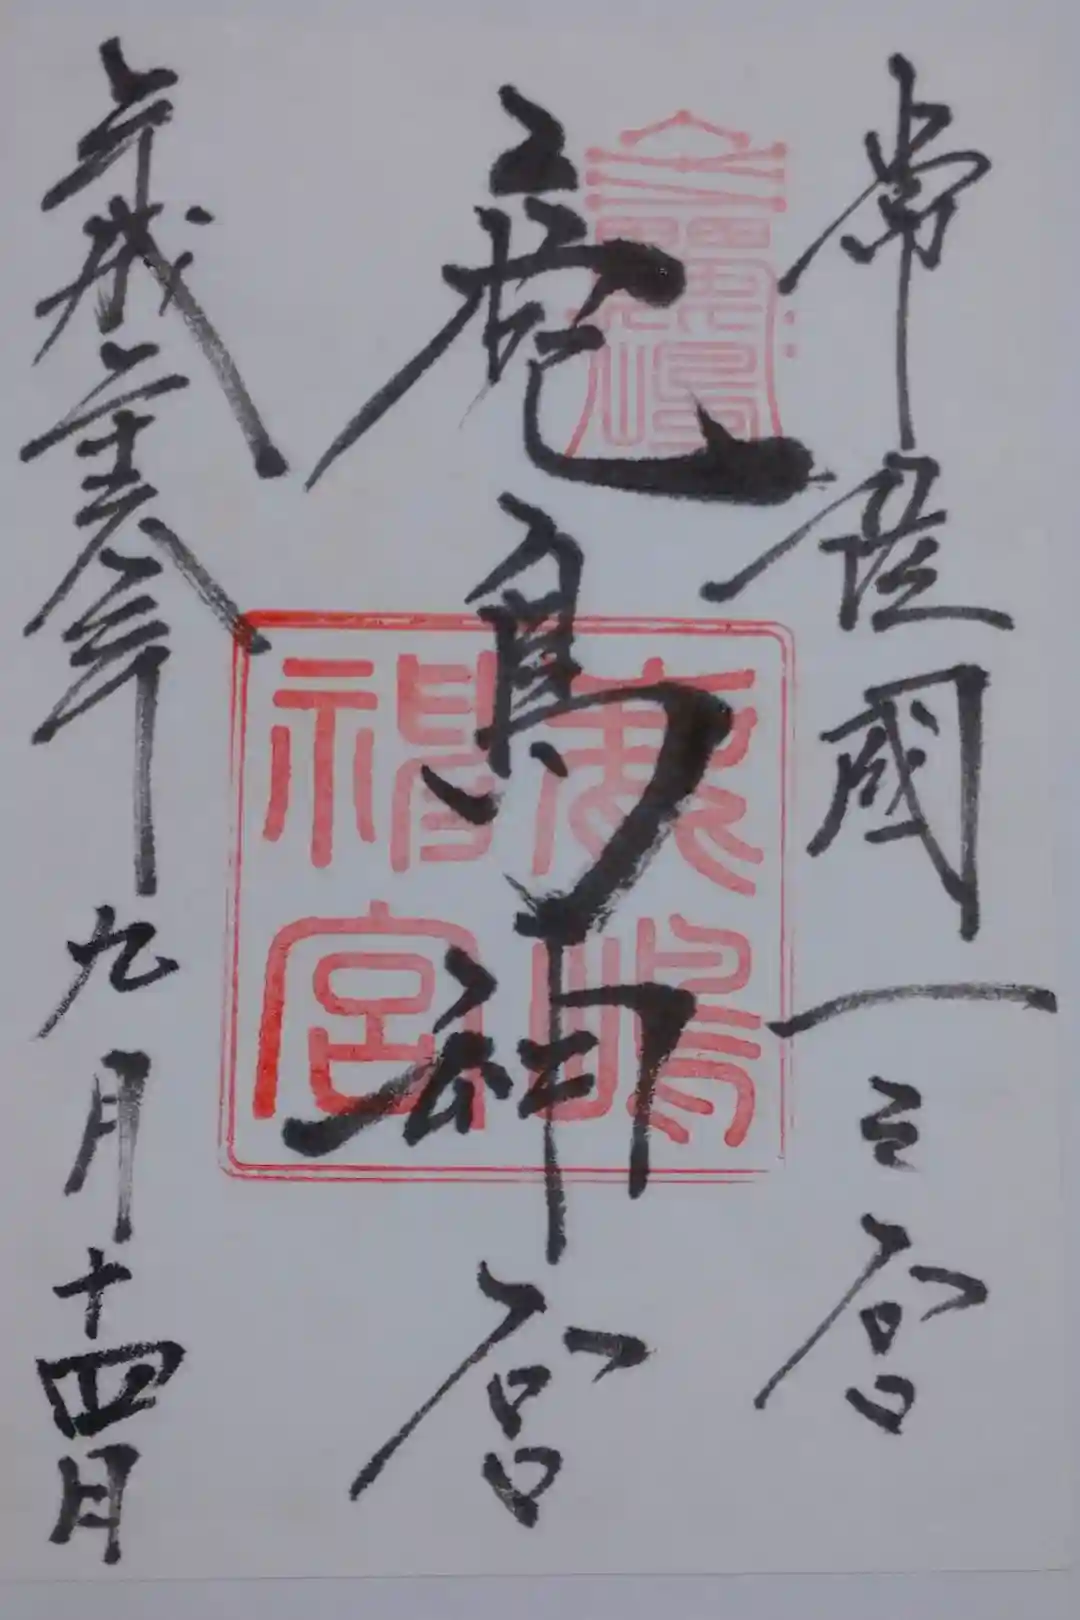 常陸國一之宮
鹿島神宮
鹿嶋神宮
平成二十年九月十四日